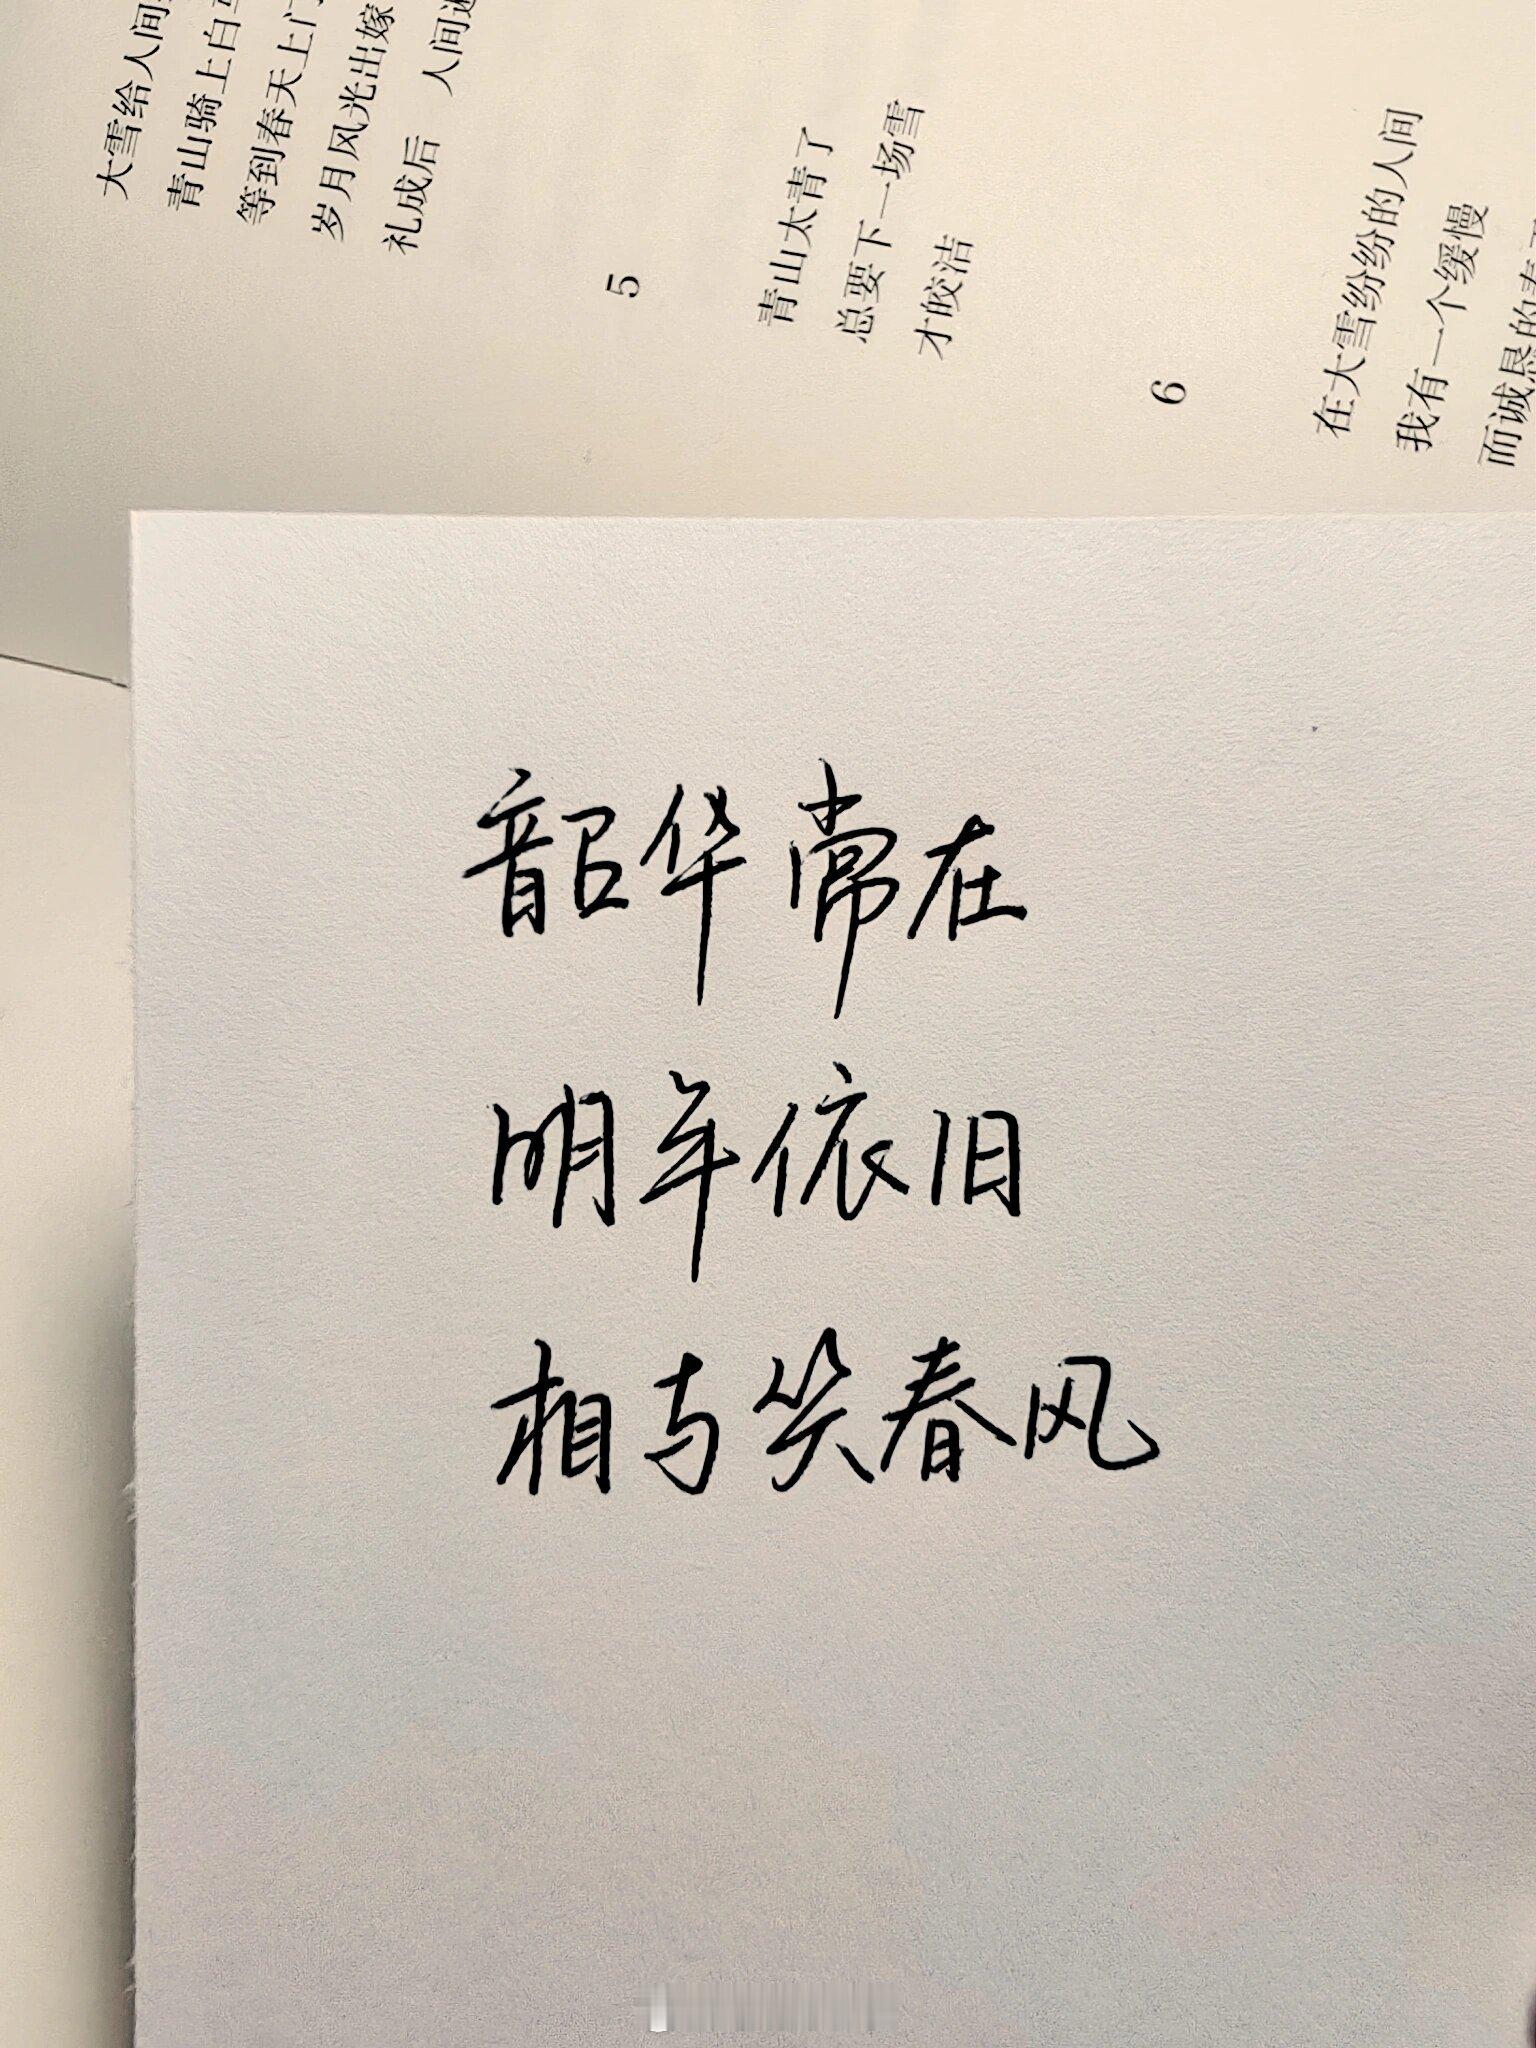 大雪给人间
青山骑上白
等到春天上门
岁月风光出嫁
礼成后 人间
5
青山太青了
总要下一场雪
才皎洁
6
在大雪纷纷的人间
我有一个缓慢
而诚恳的春
韶华常在
明年依旧
相与笑春风